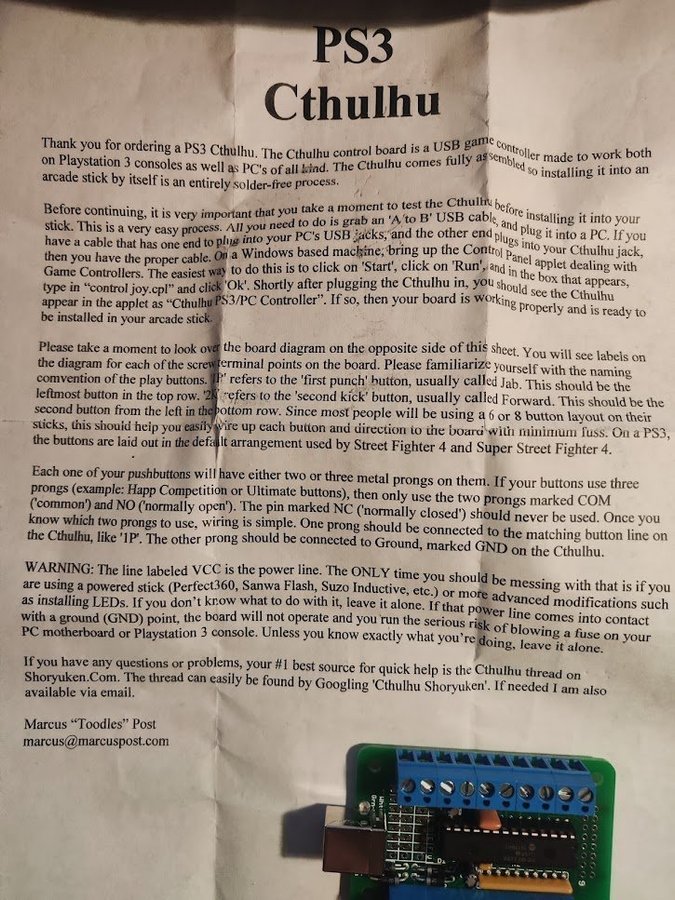 PS3
Cthulhu
Thank you for ordering a PS3 Cthulhu. The Cthulhu control board is a USB game controller made to work both
on Playstation 3 consoles as well as PC's of all kind. The Cthulhu comes fully assembled so installing it into an
arcade stick by itself is an entirely solder-free process.
Before continuing, it is very important that you take a moment to test the Cthulhu before installing it into your
stick. This is a very easy process. All you need to do is grab an 'A to B' USB cable, and plug it into a PC. If you
have a cable that has one end to plug into your PC's USB jacks, and the other end plugs into your Cthulhu jack,
then you have the proper cable. On a Windows based machine, bring up the Control Panel applet dealing with
Game Controllers. The easiest way to do this is to click on 'Start', click on 'Run', and in the box that appears,
type in "control joy.cpl" and click 'Ok'. Shortly after plugging the Cthulhu in, you should see the Cthulhu
appear in the applet as "Cthulhu PS3/PC Controller". If so, then your board is working properly and is ready to
be installed in your arcade stick.
Please take a moment to look over the board diagram on the opposite side of this sheet. You will see labels on
the diagram for each of the screw terminal points on the board. Please familiarize yourself with the naming
comvention of the play buttons. '1P' refers to the 'first punch' button, usually called Jab. This should be the
leftmost button in the top row. '2K' refers to the 'second kick' button, usually called Forward. This should be the
second button from the left in the bottom row. Since most people will be using a 6 or 8 button layout on their
sticks, this should help you easily wire up each button and direction to the board with minimum fuss. On a PS3,
the buttons are laid out in the default arrangement used by Street Fighter 4 and Super Street Fighter 4.
Each one of your pushbuttons will have either two or three metal prongs on them. If your buttons use three
prongs (example: Happ Competition or Ultimate buttons), then only use the two prongs marked COM
('common') and NO ('normally open'). The pin marked NC ('normally closed') should never be used. Once you
know which two prongs to use, wiring is simple. One prong should be connected to the matching button line on
the Cthulhu, like '1P'. The other prong should be connected to Ground, marked GND on the Cthulhu.
WARNING: The line labeled VCC is the power line. The ONLY time you should be messing with that is if you
are using a powered stick (Perfect360, Sanwa Flash, Suzo Inductive, etc.) or more advanced modifications such
as installing LEDs. If you don't know what to do with it, leave it alone. If that power line comes into contact
with a ground (GND) point, the board will not operate and you run the serious risk of blowing a fuse on your
PC motherboard or Playstation 3 console. Unless you know exactly what you're doing, leave it alone.
If you have any questions or problems, your #1 best source for quick help is the Cthulhu thread on
Shoryuken.Com. The thread can easily be found by Googling 'Cthulhu Shoryuken'. If needed I am also
available via email.
Marcus "Toodles" Post
marcus@marcuspost.com